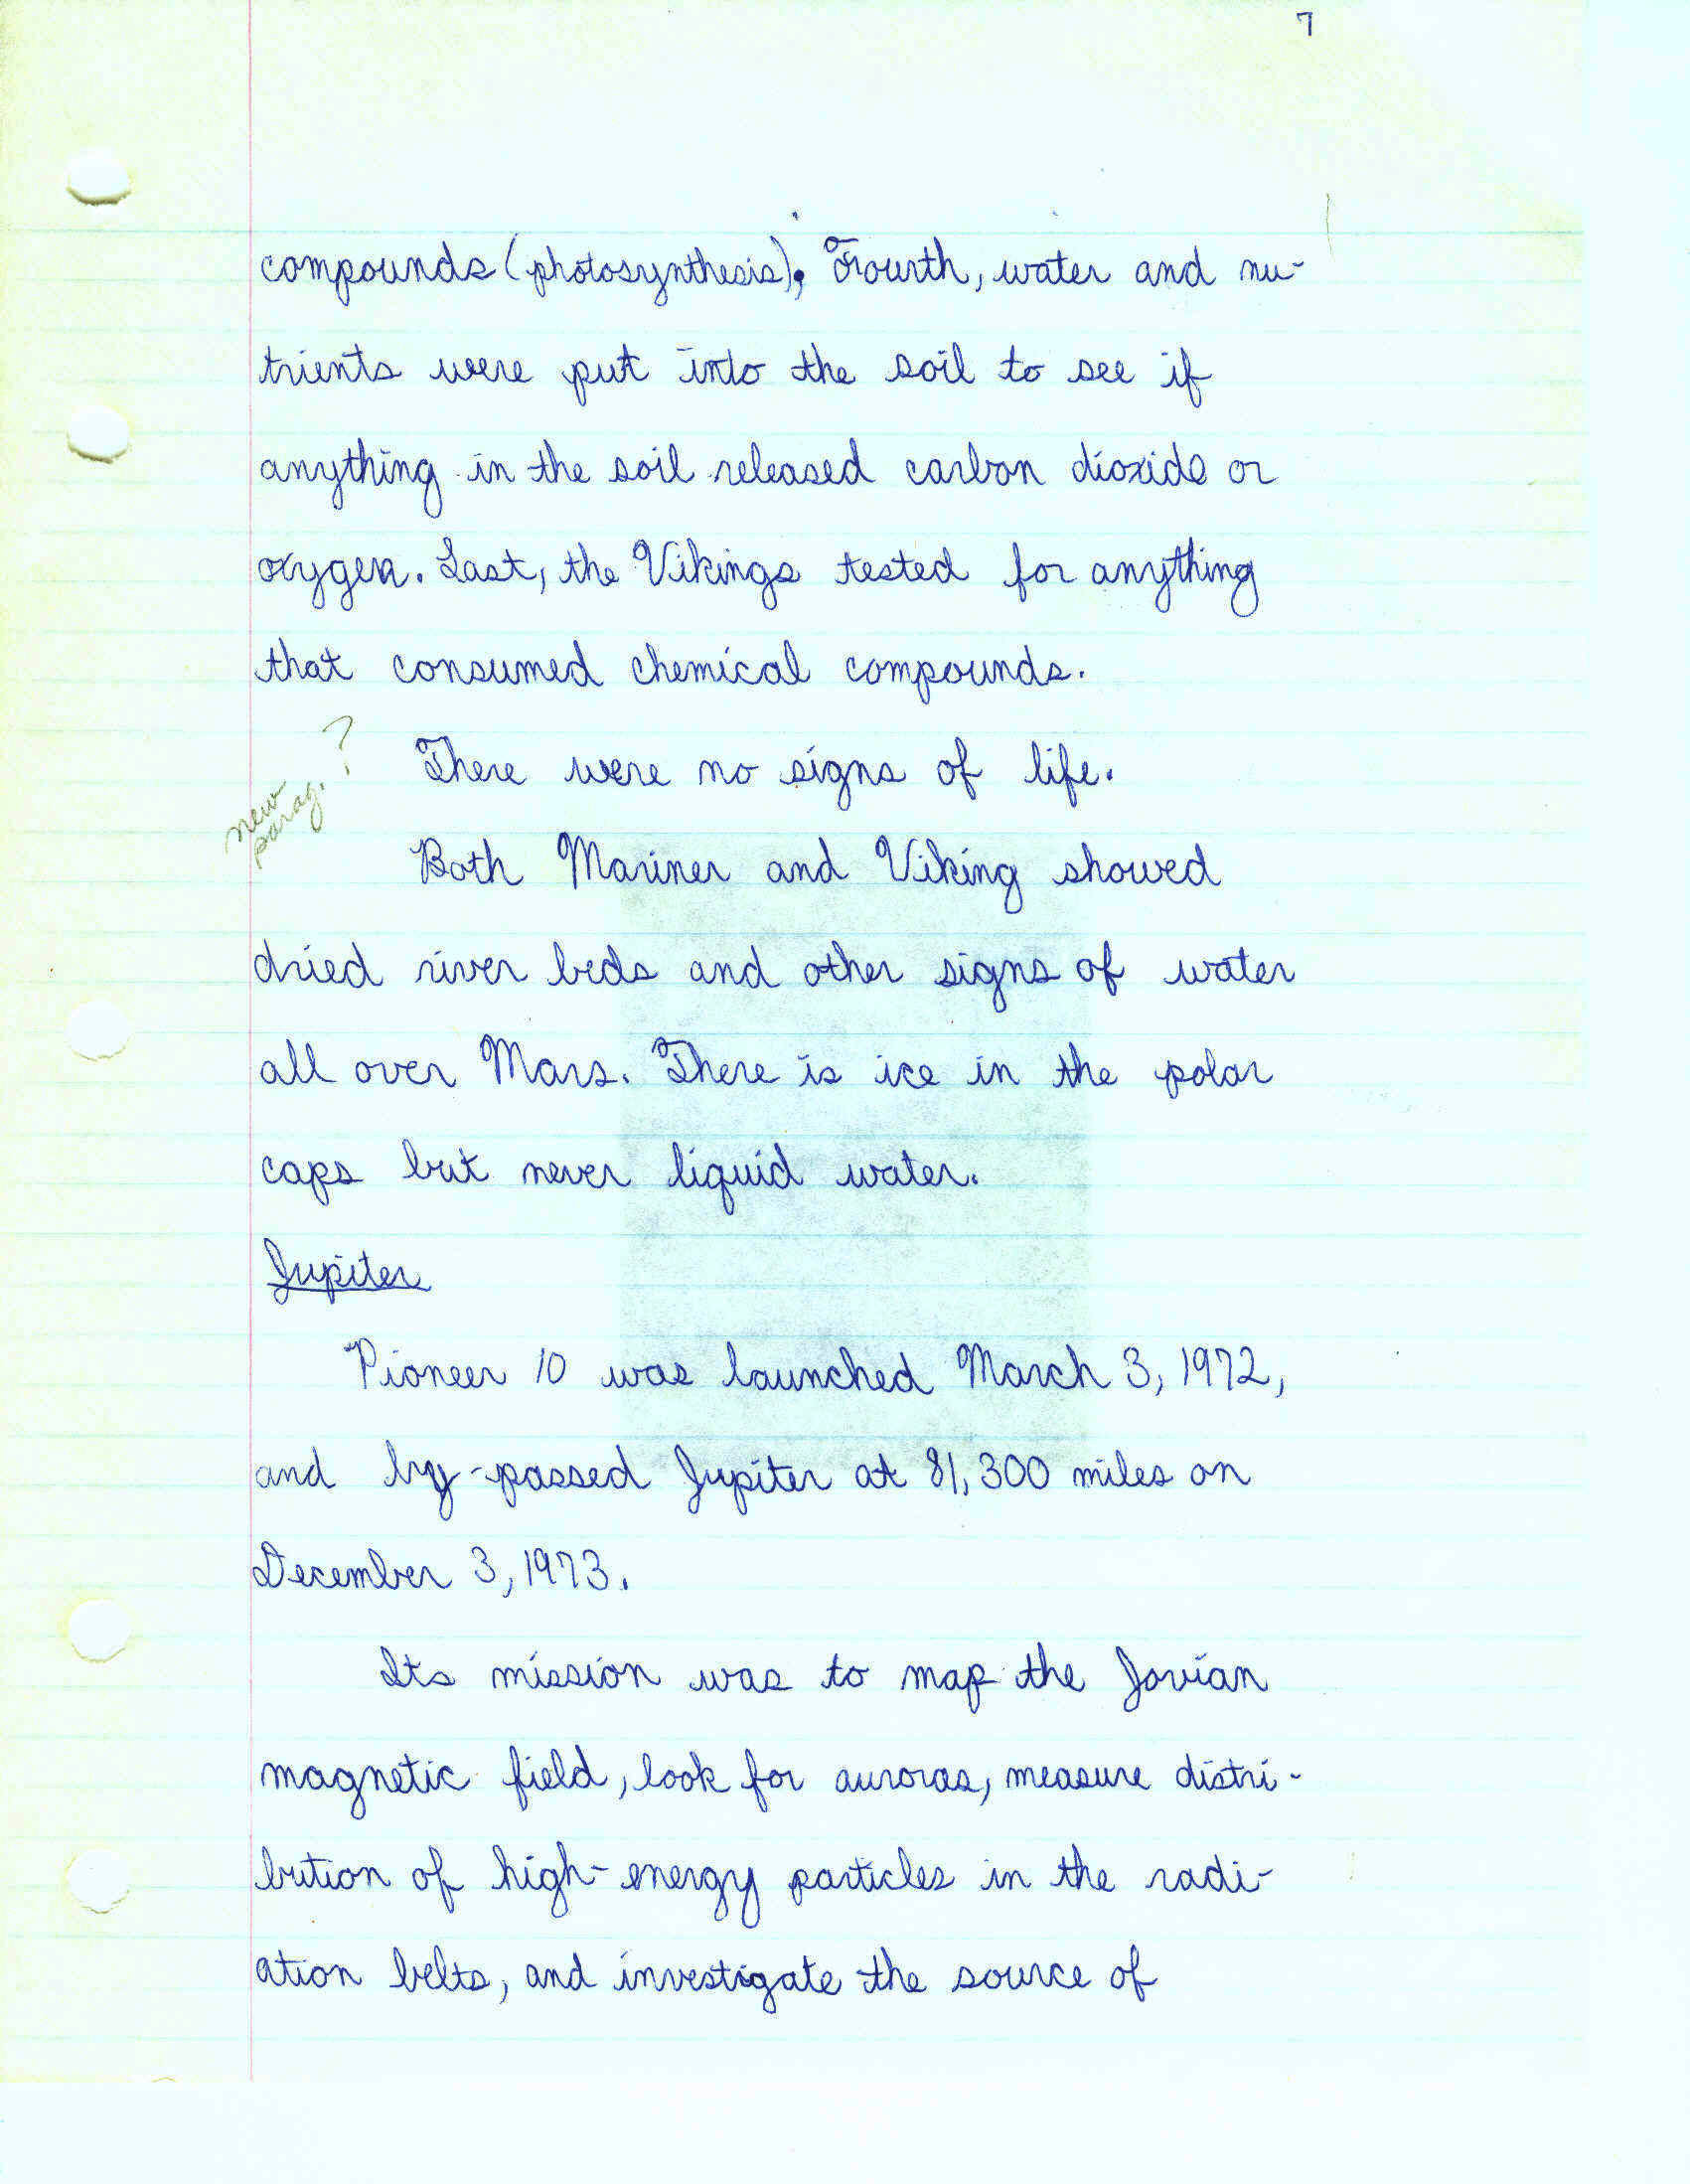 7
compounds (photosynthesis). Fourth, water and nu-
trients were put into the soil to see if
anything in the soil released carbon dioxide or
oxygen. Last, the Vikings tested for anything
that consumed chemical compounds.
new parag. ?
There were no signs of life.
Both Mariner and Viking showed
dried river beds and other signs of water
all over Mars. There is ice in the polar
caps but never liquid water.
Jupiter
Pioneer 10 was launched March 3, 1972,
and by-passed Jupiter at 81,300 miles on
December 3, 1973.
Its mission was to map the Jovian
magnetic field, look for auroras, measure distri-
bution of high-energy particles in the radi-
ation belts, and investigate the source of